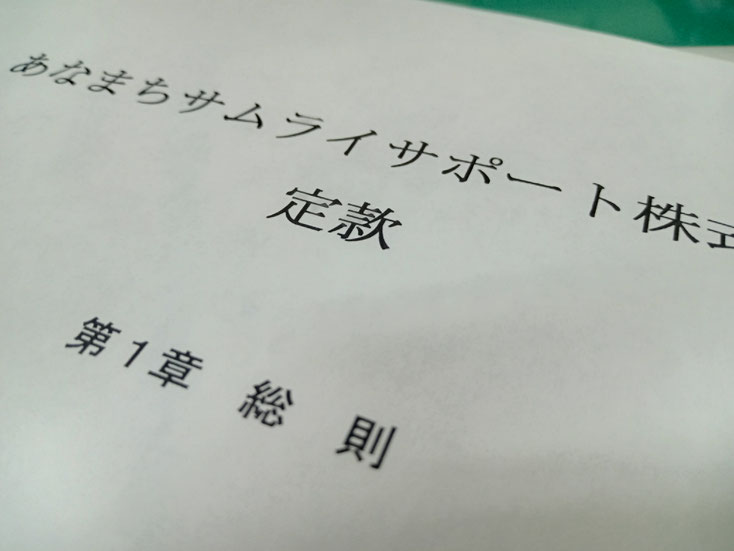 あなまちサムライサポート株式
定款
第1章 総 則